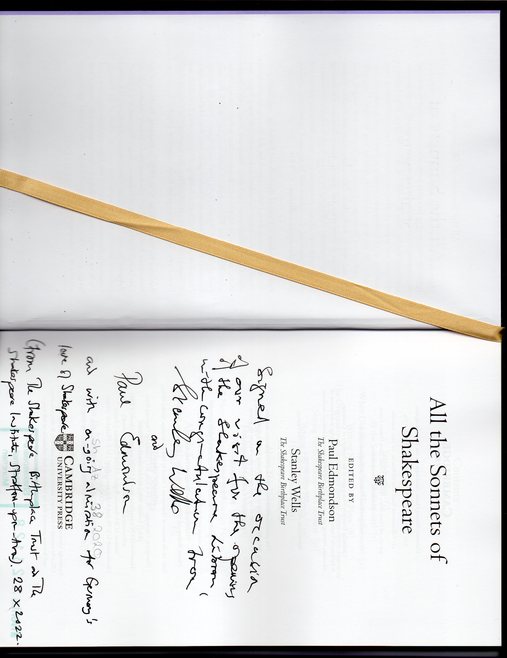 All the Sonnets of
Shakespeare
EDITED BY
Paul Edmondson
The Shakespeare Birthplace Trust
Stanley Wells
The Shakespeare Birthplace Trust
Signed on the occasion
of our visit for the opening
of the Shakespeare
with congratulation from
Stanley Wells
and
Paul Edmondson
and with on-going admiration for Germany's
love of Shakespeare
CAMBRIDGE
UNIVERSITY PRESS
(From The Shakespeare Birthplace Trust and The
Shakespeare Institute, Stratford-upon-Avon). 28 X 2022.